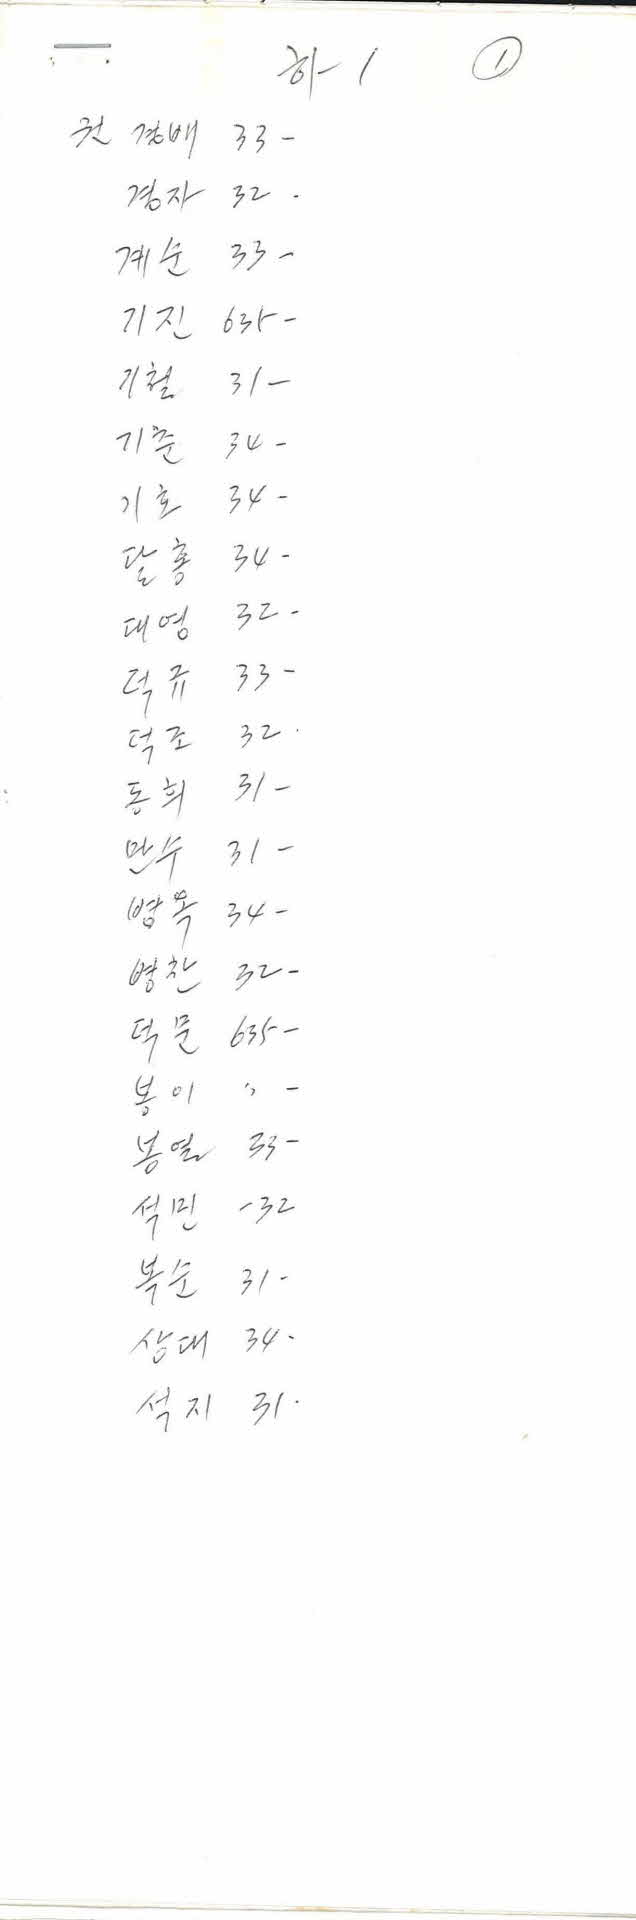 하-1 ①
권 경배 33-
경자 32.
계순 33-
기진 635-
기철 31-
기준 34-
기호 34-
달홍 34-
대영 32-
덕규 33-
덕조 32.
동희 31-
만수 31-
병옥 34-
병찬 32-
덕문 635-
봉이 〃 -
봉열 33-
석민 -32
복순 31-
상대 34-
석지 31.